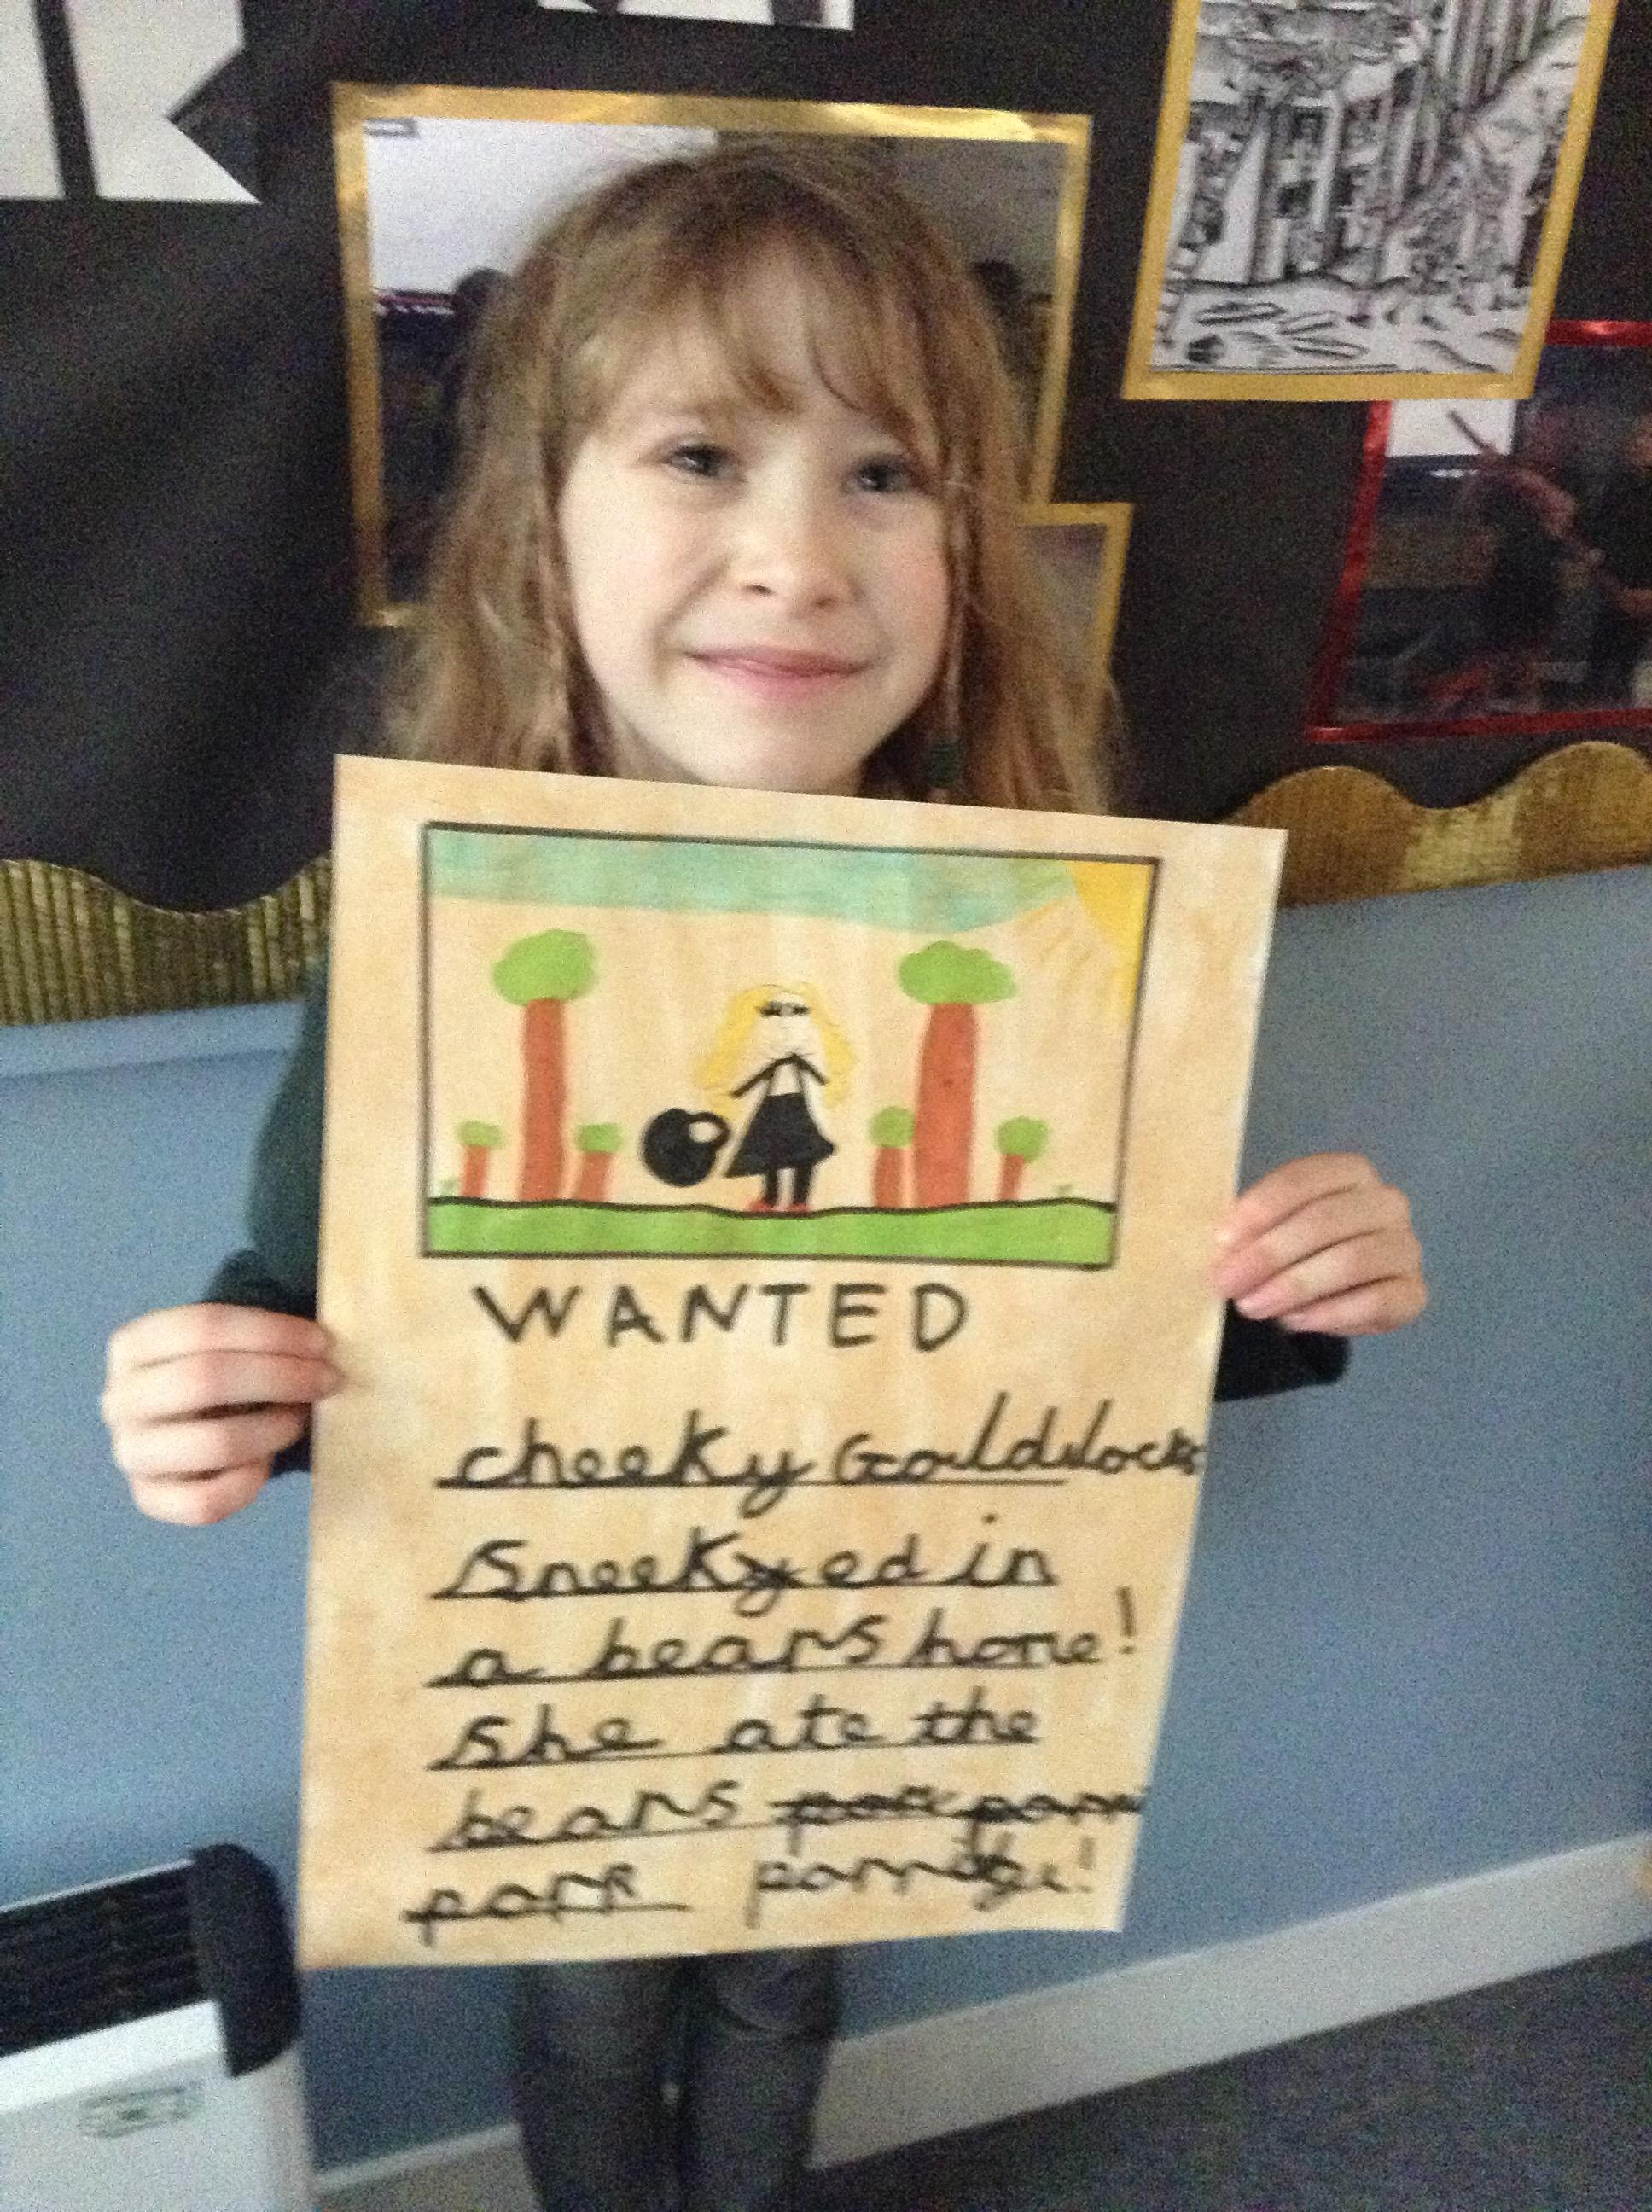 WANTED
cheeky Goldilocks
Sneekyed in
a bears home!
She ate the
bears
porridge!